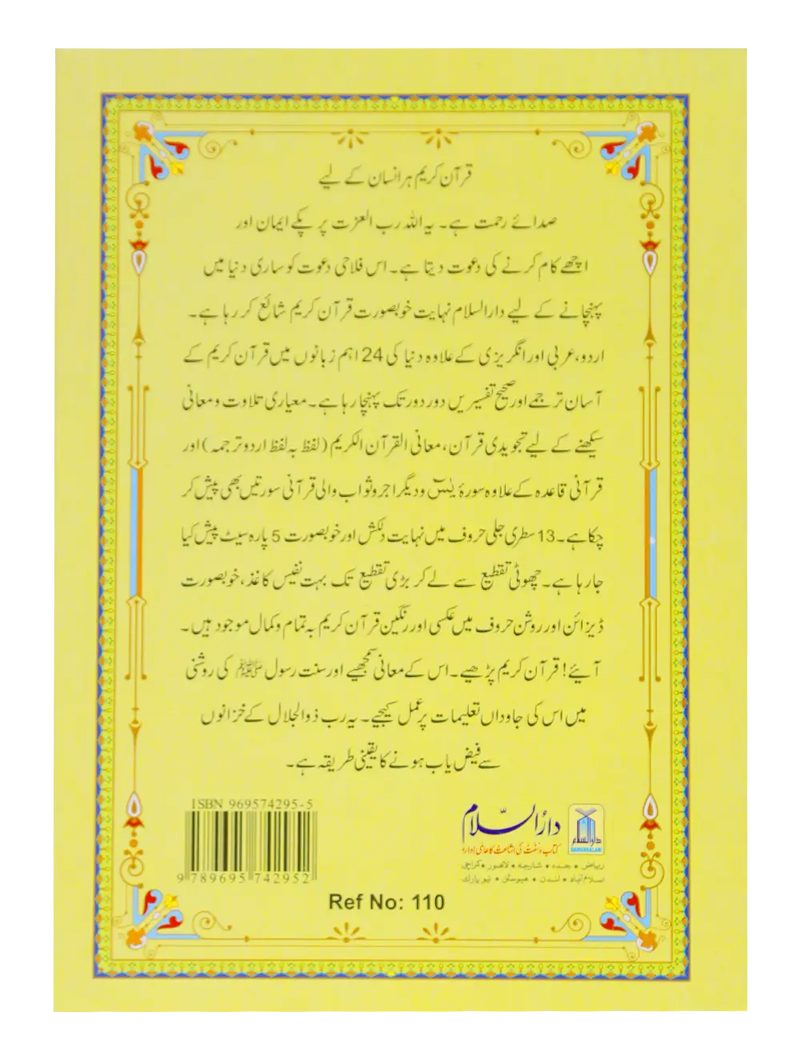 قرآن کریم ہر انسان کے لیے
صدائے رحمت ہے۔ یہ اللہ رب العزت پر پکے ایمان اور
اچھے کام کرنے کی دعوت دیتا ہے۔ اس فلاحی دعوت کو ساری دنیا میں
پہنچانے کے لیے دارالسلام نہایت خوبصورت قرآن کریم شائع کر رہا ہے۔
اردو، عربی اور انگریزی کے علاوہ دنیا کی 24 اہم زبانوں میں قرآن کریم کے
آسان ترجمے اور صحیح تفسیریں دور دور تک پہنچا رہا ہے۔ معیاری تلاوت و معانی
سیکھنے کے لیے تجویدی قرآن، معانی القرآن الکریم (لفظ بہ لفظ اردو ترجمہ) اور
قرآنی قاعدہ کے علاوہ سورۂ یٰسٓ و دیگر اجر و ثواب والی قرآنی سورتیں بھی پیش کر
چکا ہے۔ 13 سطری جلی حروف میں نہایت دلکش اور خوبصورت 5 پارہ سیٹ پیش کیا
جا رہا ہے۔ چھوٹی تقطیع سے لے کر بڑی تقطیع تک بہت نفیس کاغذ، خوبصورت
ڈیزائن اور روشن حروف میں عکسی اور رنگین قرآن کریم بہ تمام و کمال موجود ہیں۔
آیئے! قرآن کریم پڑھیے۔ اس کے معانی سمجھیے اور سنت رسول ﷺ کی روشنی
میں اس کی جاوداں تعلیمات پر عمل کیجیے۔ یہ رب ذوالجلال کے خزانوں
سے فیض یاب ہونے کا یقینی طریقہ ہے۔
دارُالسّلام
کتاب و سنت کی اشاعت کا عالمی ادارہ
ریاض • جدہ • شارجہ • لاہور • کراچی
اسلام آباد • لندن • ہیوسٹن • نیو یارک
دارالسلام
DARUSSALAM
ISBN 969574295-5
9 789695 742952
Ref No: 110